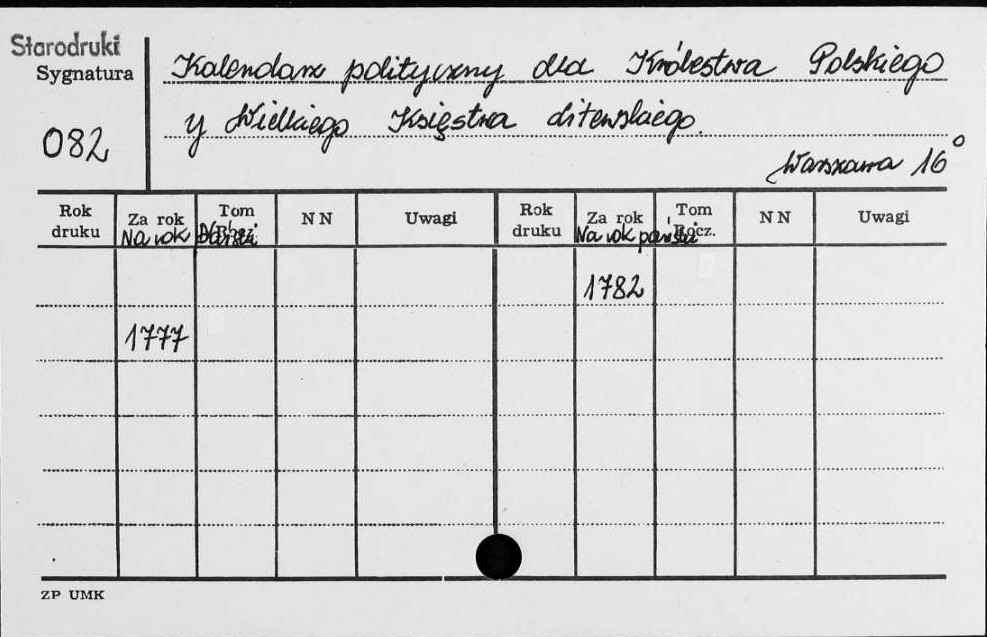 Starodruki
Sygnatura
082
Kalendarz polityczny dla Królestwa Polskiego
y Wielkiego Księstwa Litewskiego.
Warszawa 16°
Rok druku
Za rok
Tom Rocz.
N N
Uwagi
Rok druku
Za rok
Tom Rocz.
N N
Uwagi
Na rok Pański
Na rok pański
1782
1777
ZP UMK